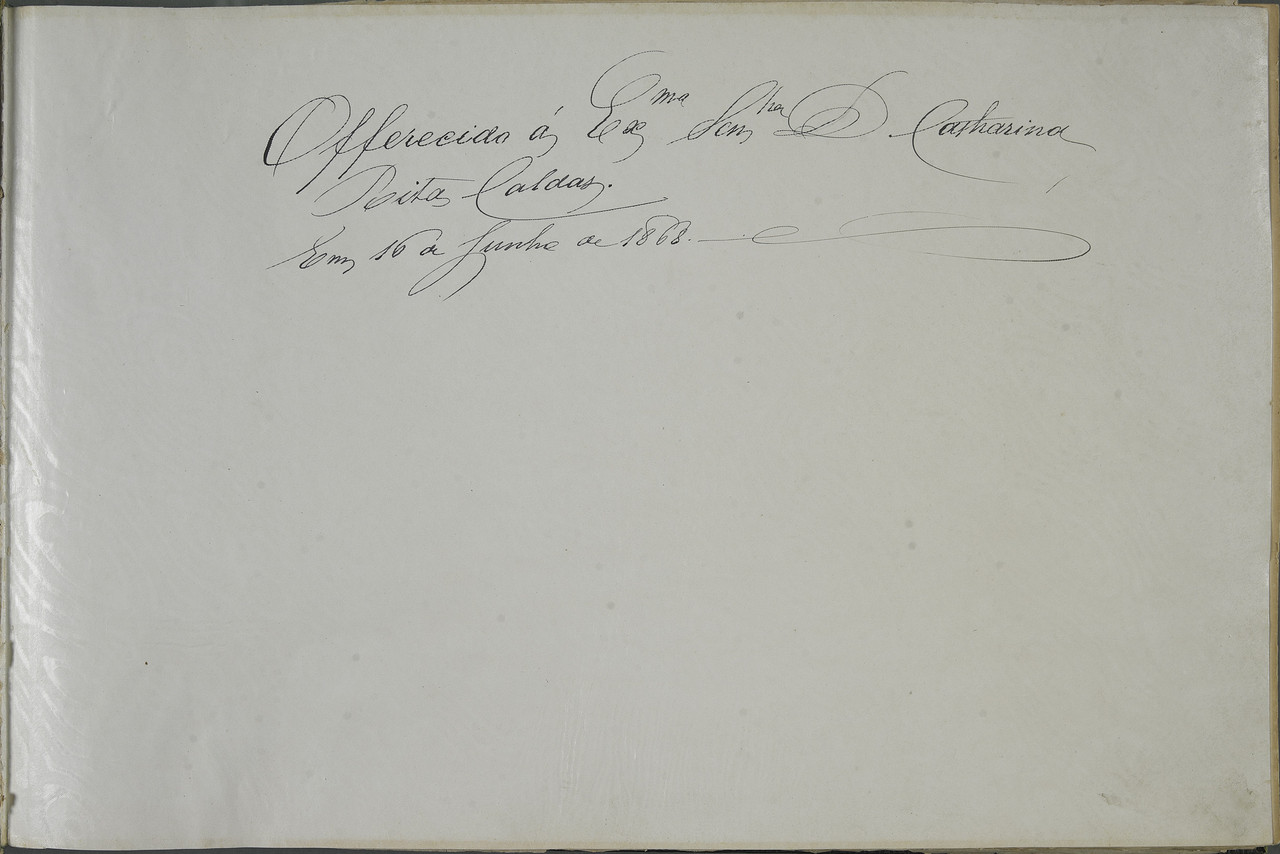 Offerecido á Exma Senhra D. Catharina
Rita Caldas.
Em 16 de Junho de 1868.